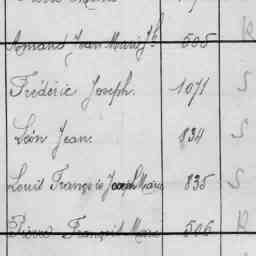 Armand Jean Marie Jh 505 R
Frédéric Joseph. 1071 S
Léon Jean. 834 S
Louis François Joseph Marie 835 S
Pierre François Marie 506 R